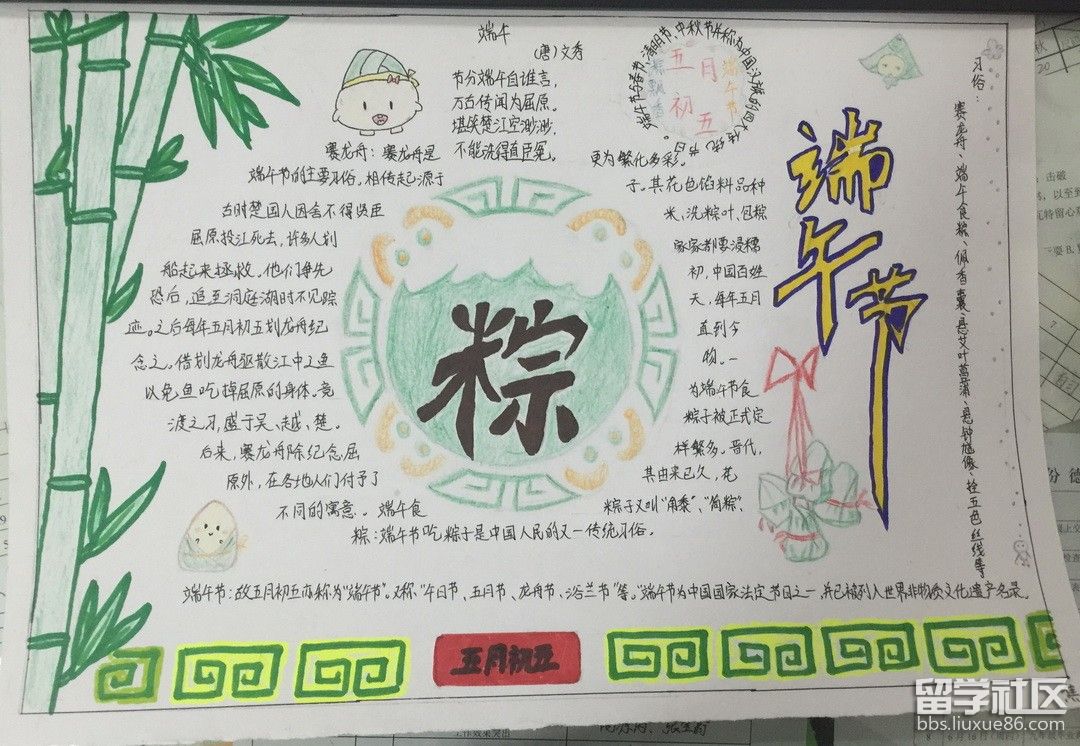 端午
(唐)文秀
节分端午自谁言,
万古传闻为屈原。
堪笑楚江空渺渺,
不能洗得直臣冤。
端午节与春节、清明节、中秋节并称为中国汉族的四大传统节日。
五月
初五
端午节
粽飘香
端午节
习俗:赛龙舟、端午食粽、佩香囊、悬艾叶菖蒲、悬钟馗像、拴五色丝线等
赛龙舟:赛龙舟是
端午节的主要习俗。相传起源于
古时楚国人因舍不得贤臣
屈原投江死去,许多人划
船起来拯救。他们争先
恐后,追至洞庭湖时不见踪
迹。之后每年五月初五划龙舟纪
念之。借划龙舟驱散江中之鱼
以免鱼吃掉屈原的身体。竞
渡之习,盛于吴、越、楚。
后来,赛龙舟除纪念屈
原外,在各地人们付予了
不同的寓意。端午食
粽:端午节吃粽子是中国人民的又一传统习俗。
粽子又叫“角黍”、“筒粽”、
其由来已久,花
样繁多。晋代,
粽子被正式定
为端午节食
物。一
直到今
天,每年五月
初,中国百姓
家家都要浸糯
米、洗粽叶、包粽
子。其花色馅料品种
更为繁化多彩。
粽
端午节:故五月初五亦称为“端午节”。又称“午日节、五月节、龙舟节、浴兰节”等。“端午节为中国国家法定节日之一,并已被列入世界非物质文化遗产名录。
五月初五
留学社区
bbs.liuxue86.com